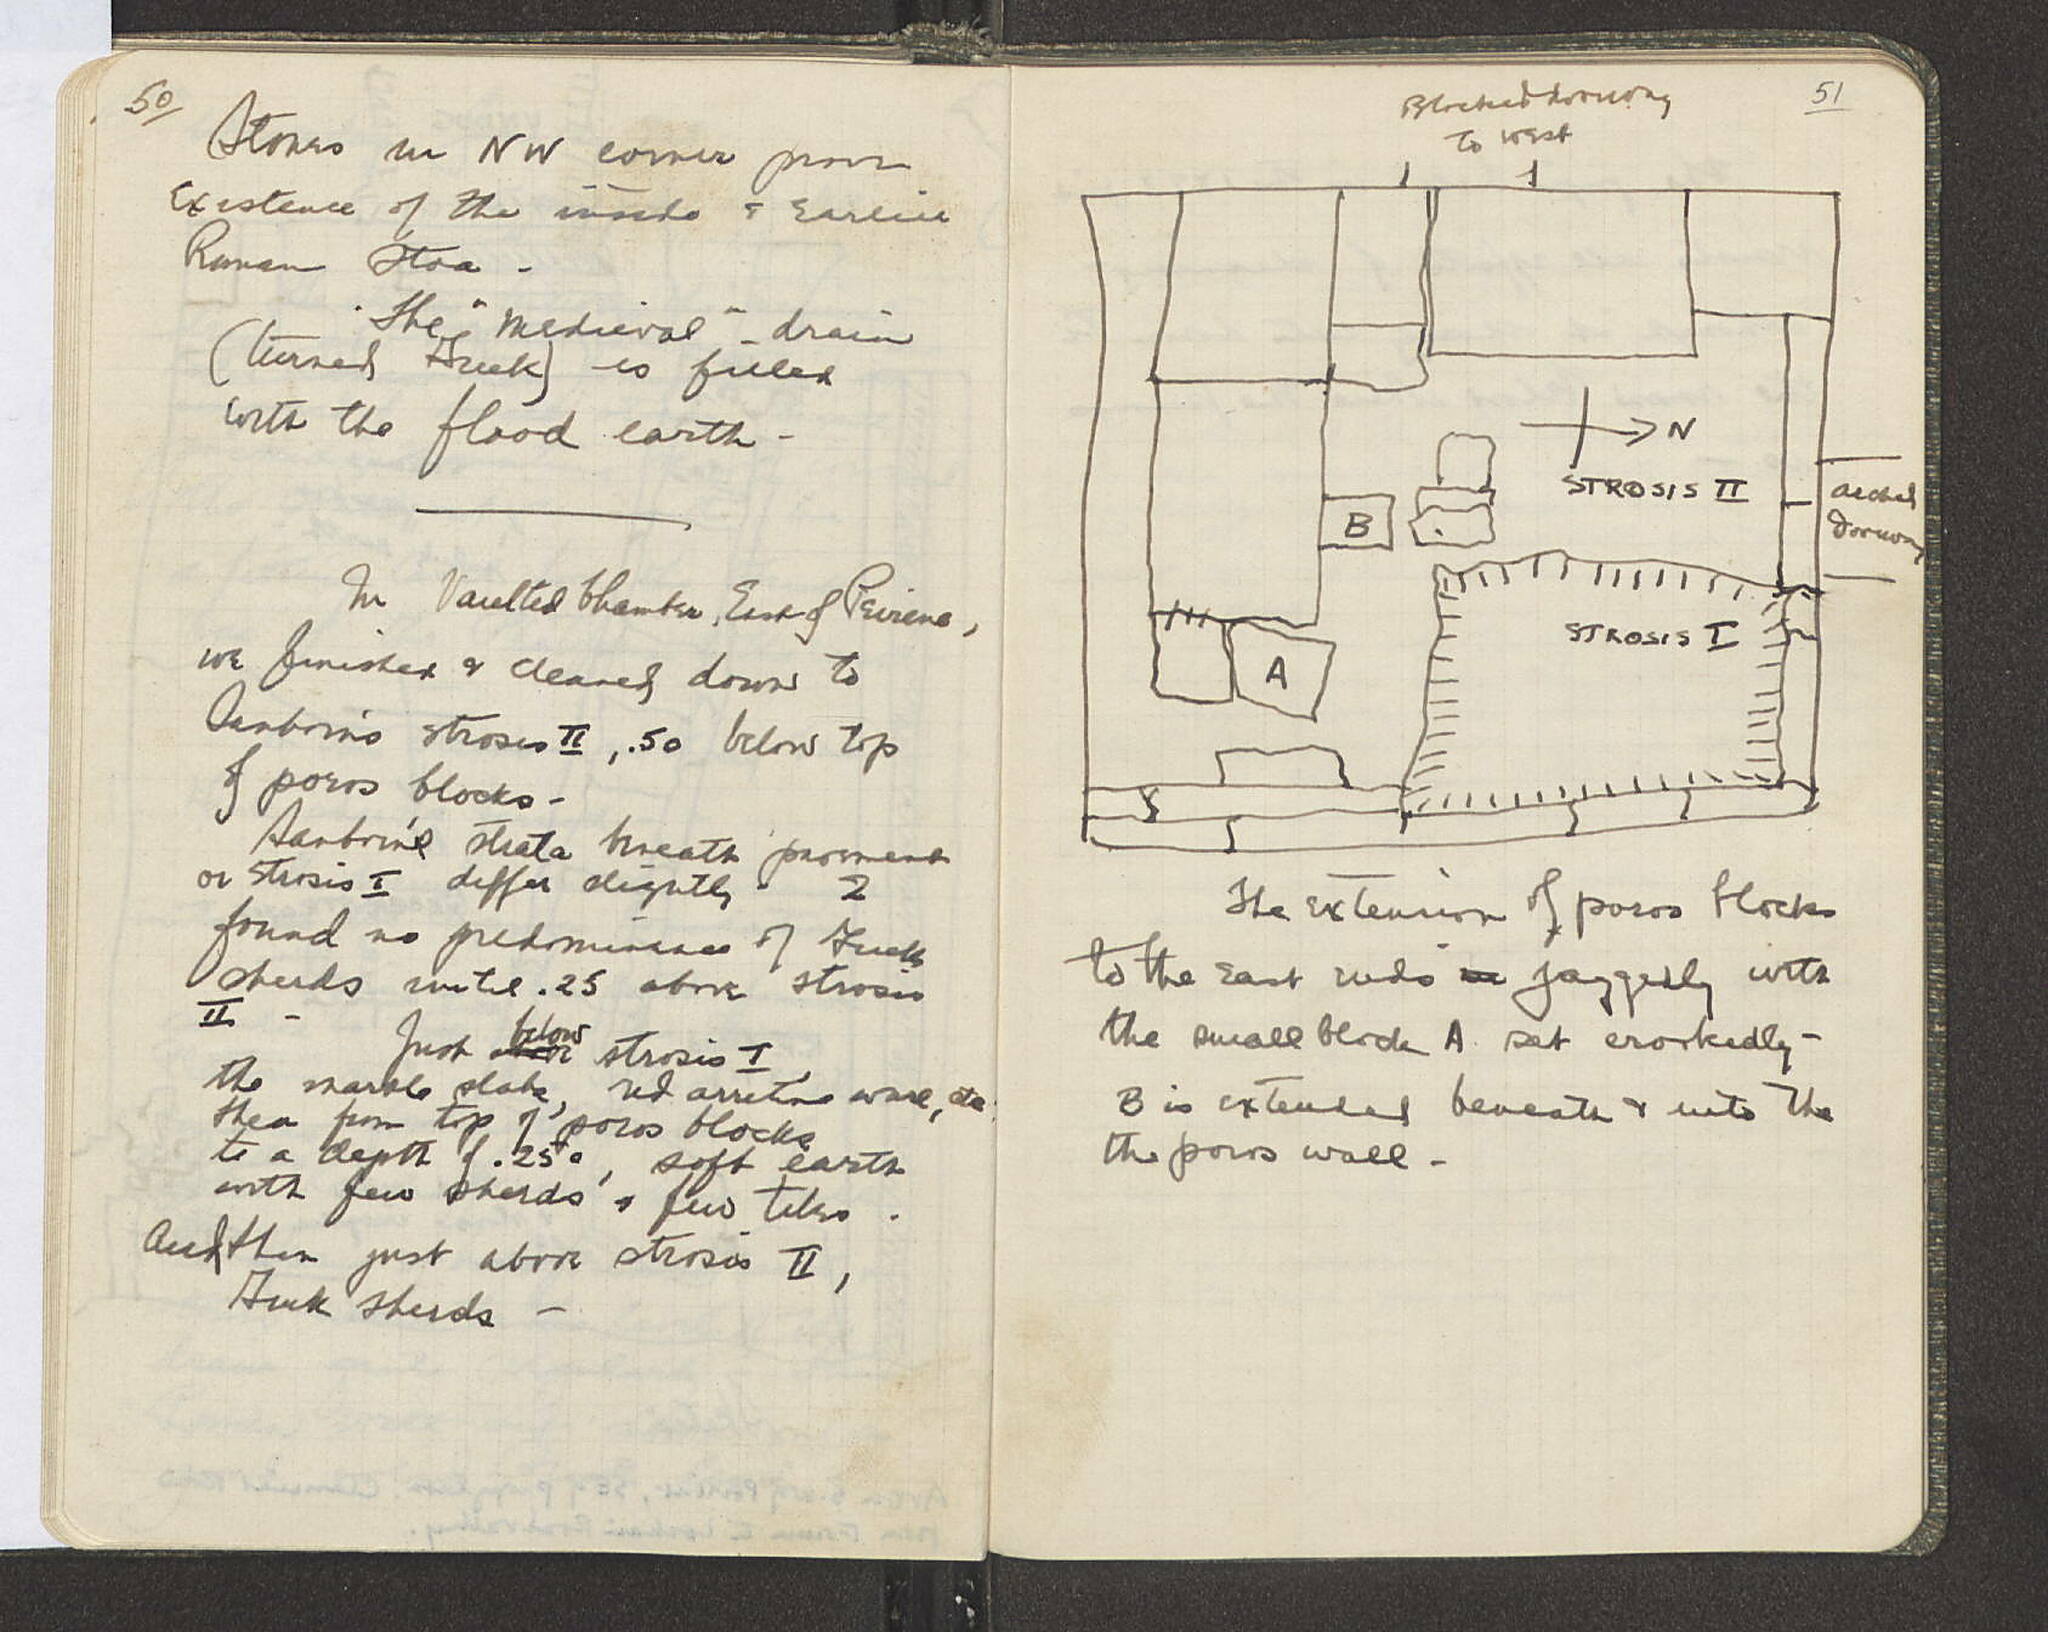 50
Stones in NW corner prove
Existence of the inside & Earlier
Roman Stoa -
The "Medieval" drain
(turned Greek) is filled
with the flood earth -
In Vaulted Chamber, East of Peirene,
we finished & cleaned down to
Sanborn's strosis II, .50 below top
of poros blocks -
Sanborn's strata beneath pavement
or Strosis I differ slightly - I
found no predominance of Greek
sherds until .25 above strosis
II -
Just below strosis I,
the marble slabs, red arretine ware, etc.
then from top of poros blocks
to a depth of .25, soft earth
with few sherds & few tiles.
And then just above strosis II,
Greek sherds -
51
Blocked doorway
to west
N
STROSIS II
arched
doorway
B
STROSIS I
A
The extension of poros blocks
to the East ends jaggedly with
the small block A set crookedly -
B is extended beneath & into the
the poros wall -